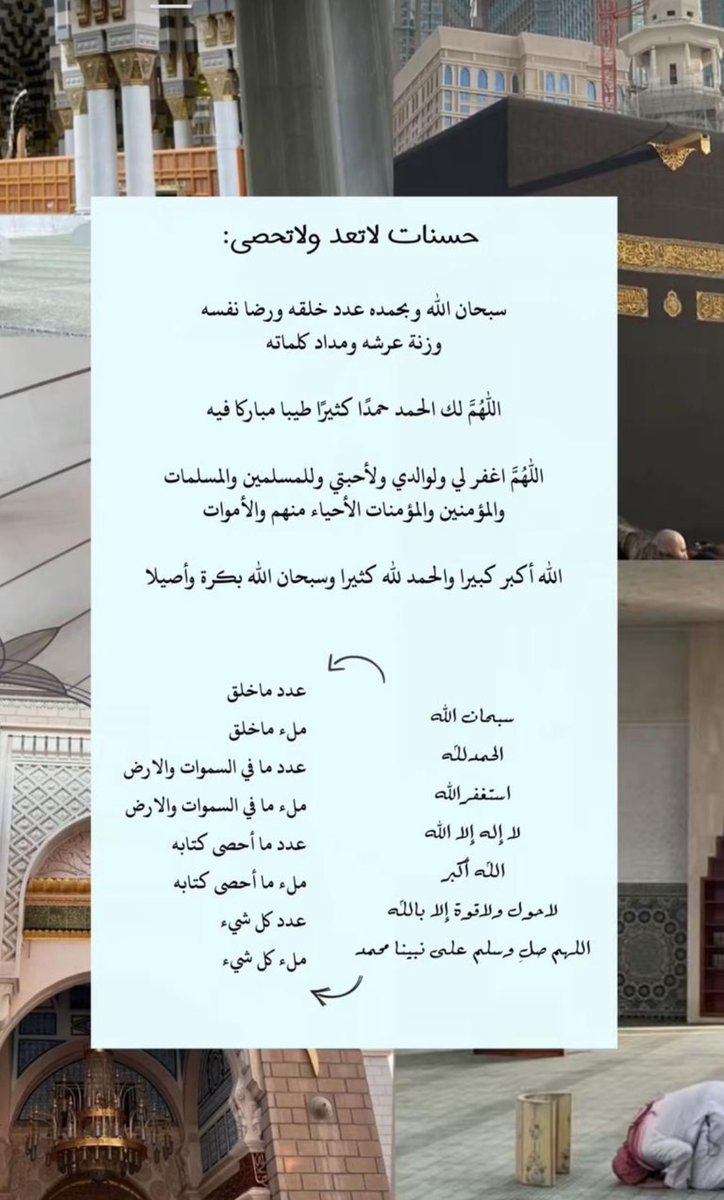 حسنات لاتعد ولاتحصى:
سبحان الله وبحمده عدد خلقه ورضا نفسه
وزنة عرشه ومداد كلماته
اللهُمَّ لك الحمد حمدًا كثيرًا طيبا مباركا فيه
اللهُمَّ اغفر لي ولوالدي ولأحبتي وللمسلمين والمسلمات
والمؤمنين والمؤمنات الأحياء منهم والأموات
الله أكبر كبيرا والحمد لله كثيرا وسبحان الله بكرة وأصيلا
سبحان الله
الحمدلله
استغفرالله
لا إله إلا الله
الله أكبر
لاحول ولاقوة إلا بالله
اللهم صلِ وسلم على نبينا محمد
عدد ماخلق
ملء ماخلق
عدد ما في السموات والارض
ملء ما في السموات والارض
عدد ما أحصى كتابه
ملء ما أحصى كتابه
عدد كل شيء
ملء كل شيء